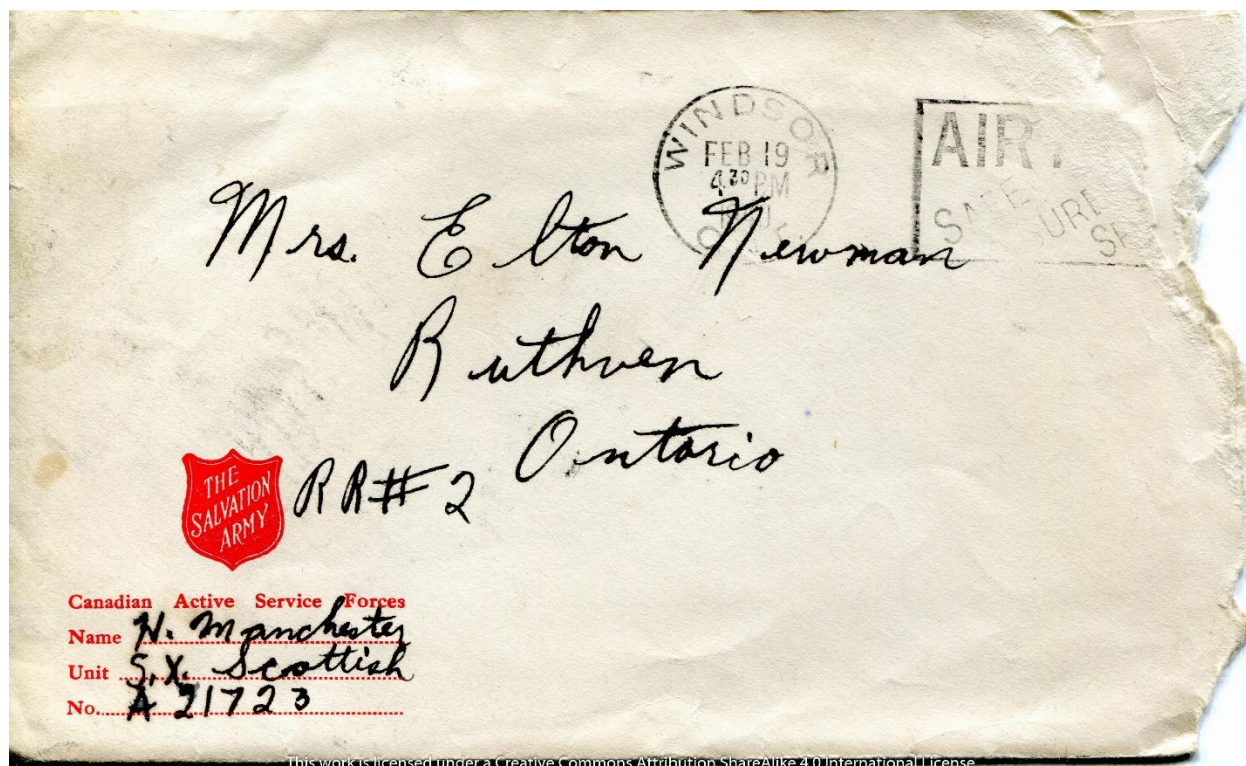 WINDSOR
FEB 19
4 30 PM
AIR
SAFE
Mrs. Elton Newman
Ruthven
Ontario
RR#2
THE
SALVATION
ARMY
Canadian Active Service Forces
Name H. Manchester
Unit S.X. Scottish
No. A 21723
This work is licensed under a Creative Commons Attribution ShareAlike 4.0 International License